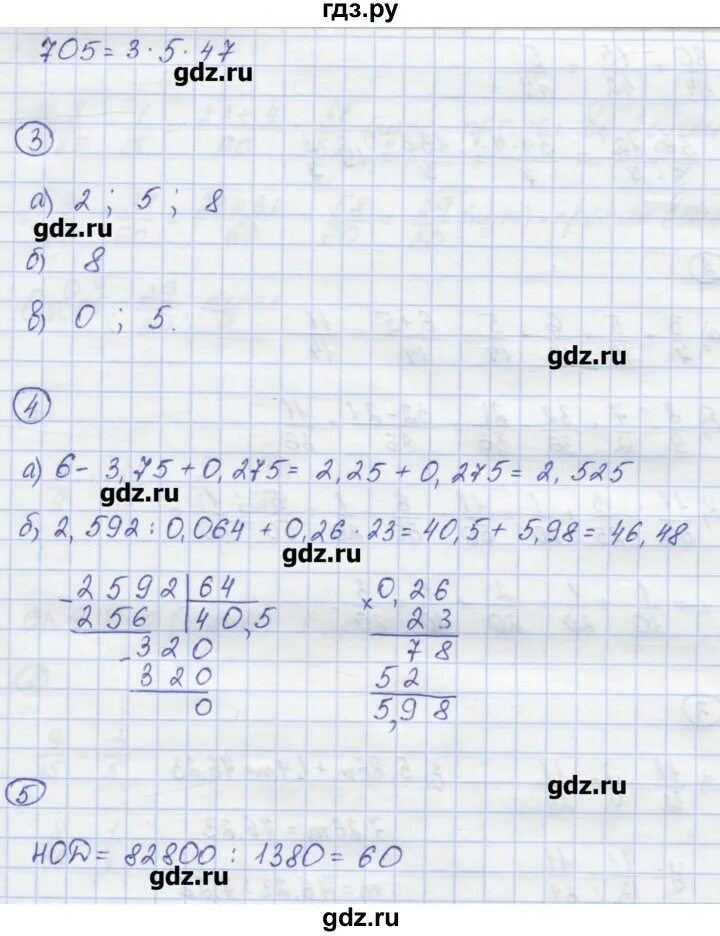 гдз.ру
705 = 3 · 5 · 47
gdz.ru
3
а) 2 ; 5 ; 8
gdz.ru
б) 8
в) 0 ; 5.
gdz.ru
4
а) 6 - 3,75 + 0,275 = 2,25 + 0,275 = 2,525
gdz.ru
б) 2,592 : 0,064 + 0,26 · 23 = 40,5 + 5,98 = 46,48
gdz.ru
- 2592 | 64
256 | 40,5
- 320
320
0
× 0,26
23
78
52
5,98
5
gdz.ru
НОД = 82800 : 1380 = 60
gdz.ru
gdz.ru